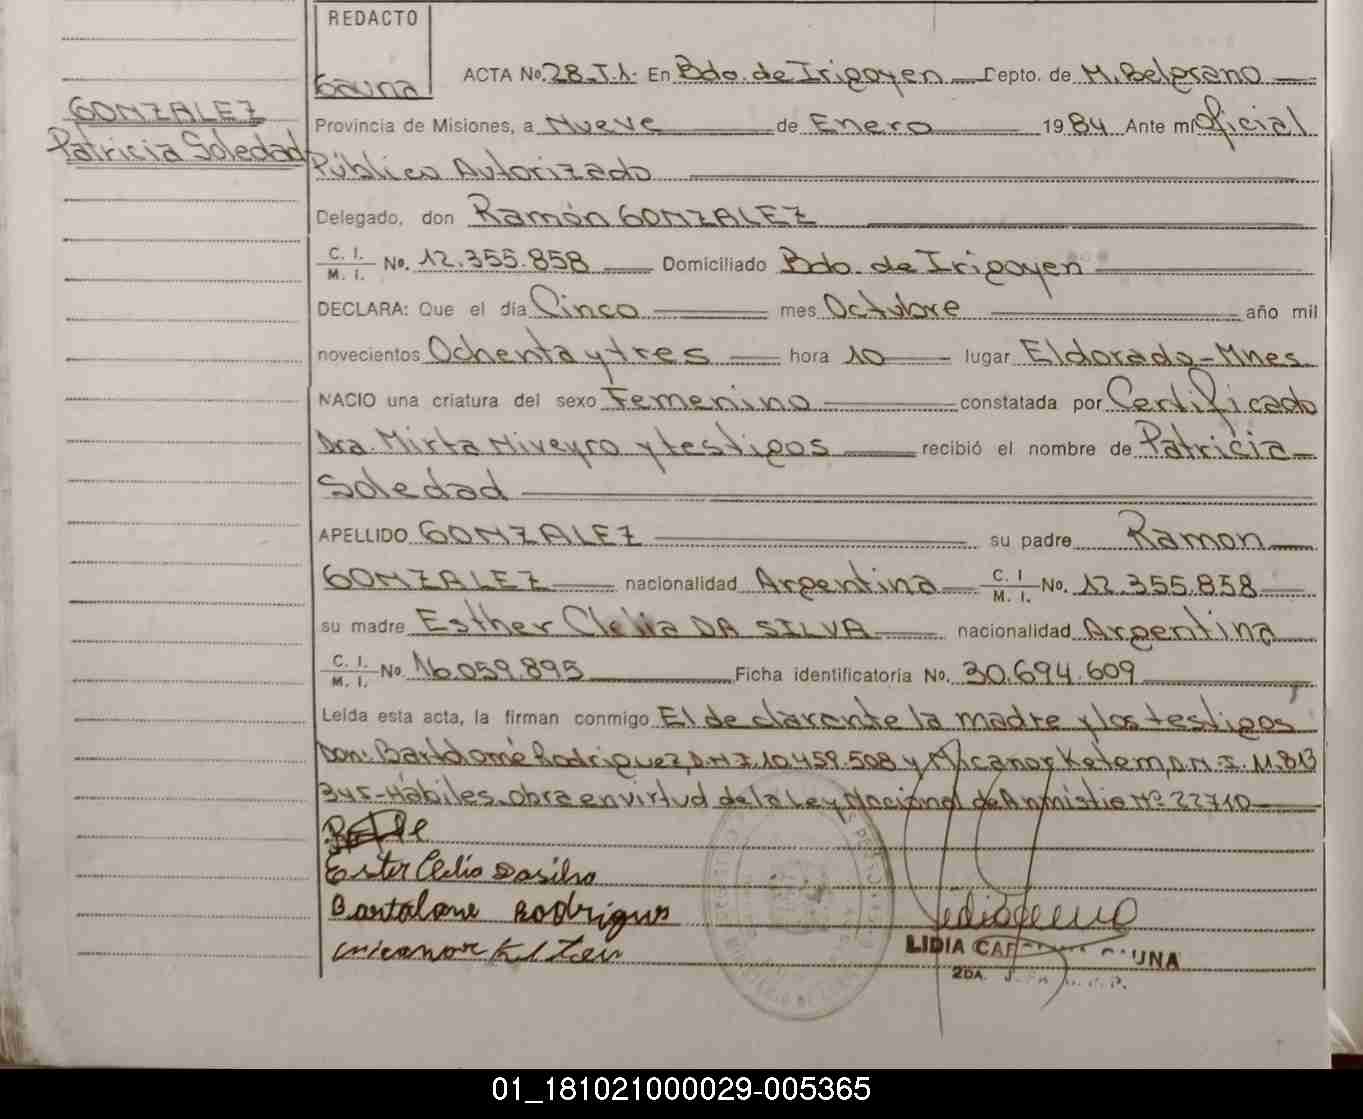 REDACTO
Gauna
GONZALEZ
Patricia Soledad
ACTA No. 28-T.1. En Bdo. de Irigoyen Depto. de M. Belgrano
Provincia de Misiones, a Nueve de Enero 1984 Ante mi Oficial
Público Autorizado
Delegado, don Ramón GONZALEZ
C. I. M. I. No. 12.355.858 Domiciliado Bdo. de Irigoyen
DECLARA: Que el día Cinco mes Octubre año mil
novecientos Ochenta y tres hora 10 lugar Eldorado-Mnes.
NACIO una criatura del sexo Femenino constatada por Certificado
Dra. Mirta Niveyro y testigos recibió el nombre de Patricia
Soledad
APELLIDO GONZALEZ su padre Ramon
GONZALEZ nacionalidad Argentina C. I M. I. No. 12.355.858
su madre Esther Clelia DA SILVA nacionalidad Argentina
C. I. M. I. No 16.059.895 Ficha identificatoria No. 30.694.609
Leída esta acta, la firman conmigo El declarante la madre y los testigos
Don: Bartolomé Rodriguez, D.N.I. 10.459.508 y Nicanor Ketem, D.N.I. 11.813
345-Hábiles. obra en virtud de la Ley Nacional de Anmistia Nº 22710
Ester Clelia Dasilva
Bartalome Rodrigues
LIDIA UNA
2DA.
01_181021000029-005365